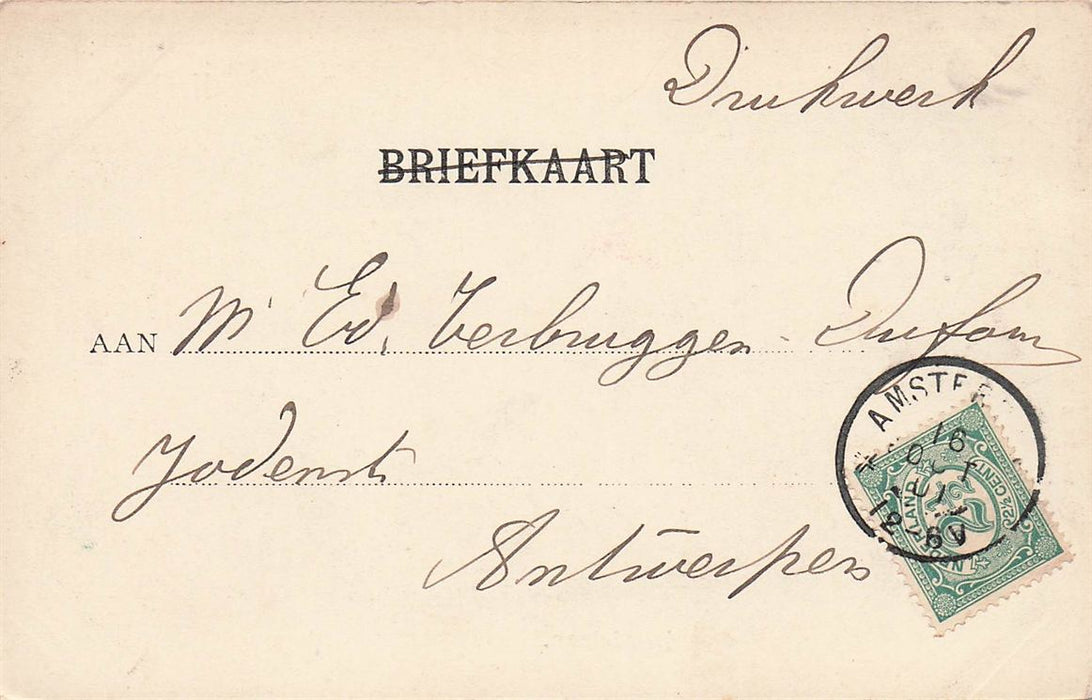 Drukwerk
BRIEFKAART
AAN Mr Ed. Verbruggen - Dufour
Jodenstr
Antwerpen
AMSTER
16
12-6V
2½ CENT